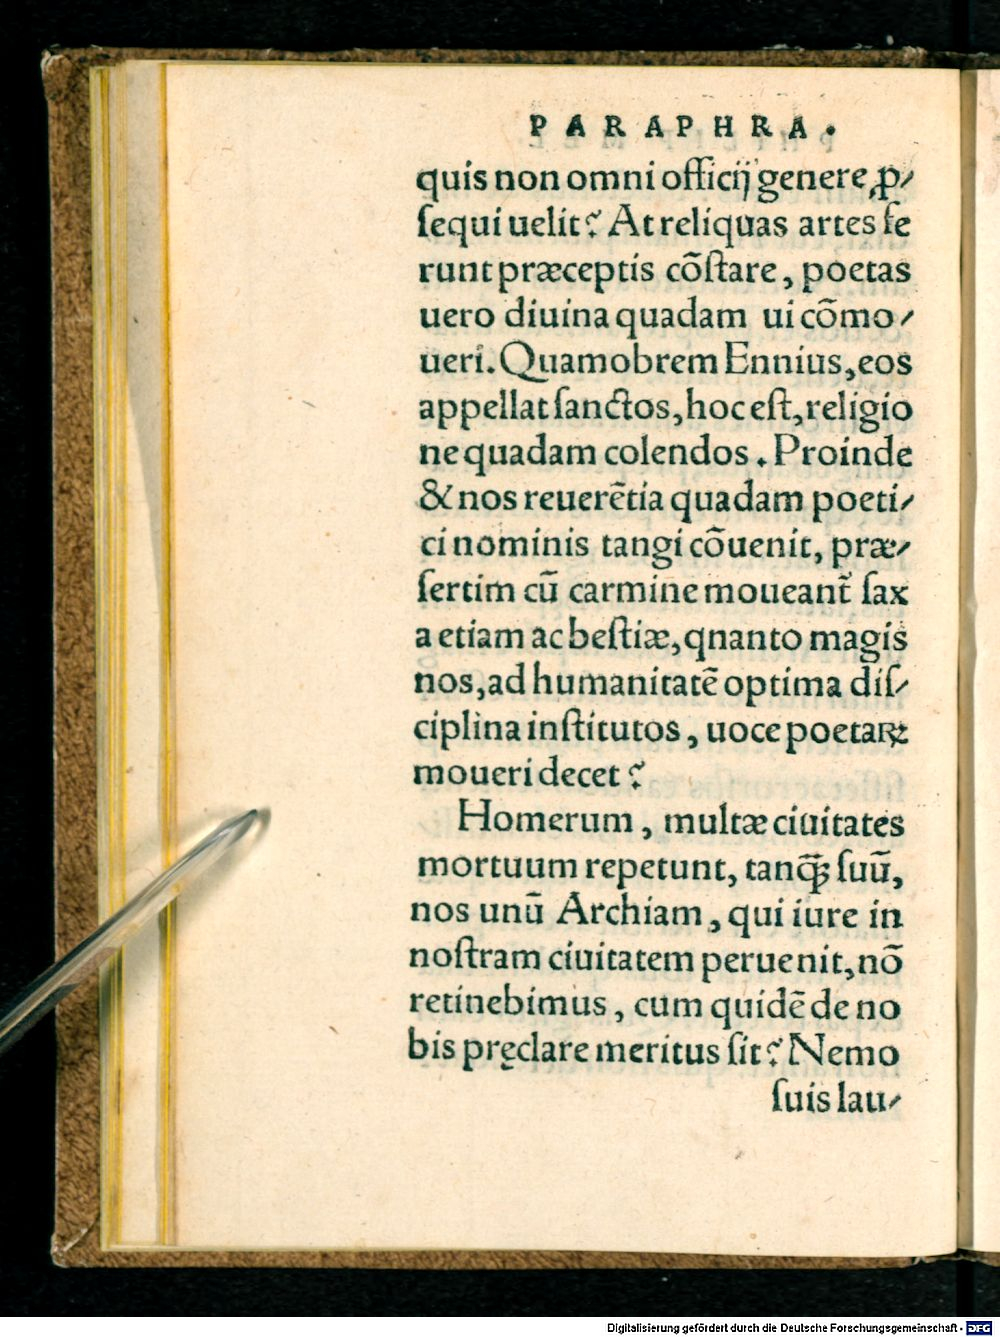 PARAPHRA.
quis non omni officij genere ꝓ⸗
ſequi uelit? At reliquas artes fe
runt præceptis cõſtare, poetas
uero diuina quadam ui cõmo⸗
ueri. Quamobrem Ennius, eos
appellat ſanctos, hoc eſt, religio
ne quadam colendos. Proinde
& nos reuerẽtia quadam poeti⸗
ci nominis tangi cõuenit, præ⸗
ſertim cũ carmine moueant̃ ſax
a etiam ac beſtiæ, qnanto magis
nos, ad humanitatẽ optima diſ⸗
ciplina inſtitutos, uoce poetaꝝ
moueri decet?
Homerum, multæ ciuitates
mortuum repetunt, tanq̃ꝫ ſuũ,
nos unũ Archiam, qui iure in
noſtram ciuitatem peruenit, nõ
retinebimus, cum quidẽ de no
bis pręclare meritus ſit? Nemo
ſuis lau⸗
Digitalisierung gefördert durch die Deutsche Forschungsgemeinschaft - DFG